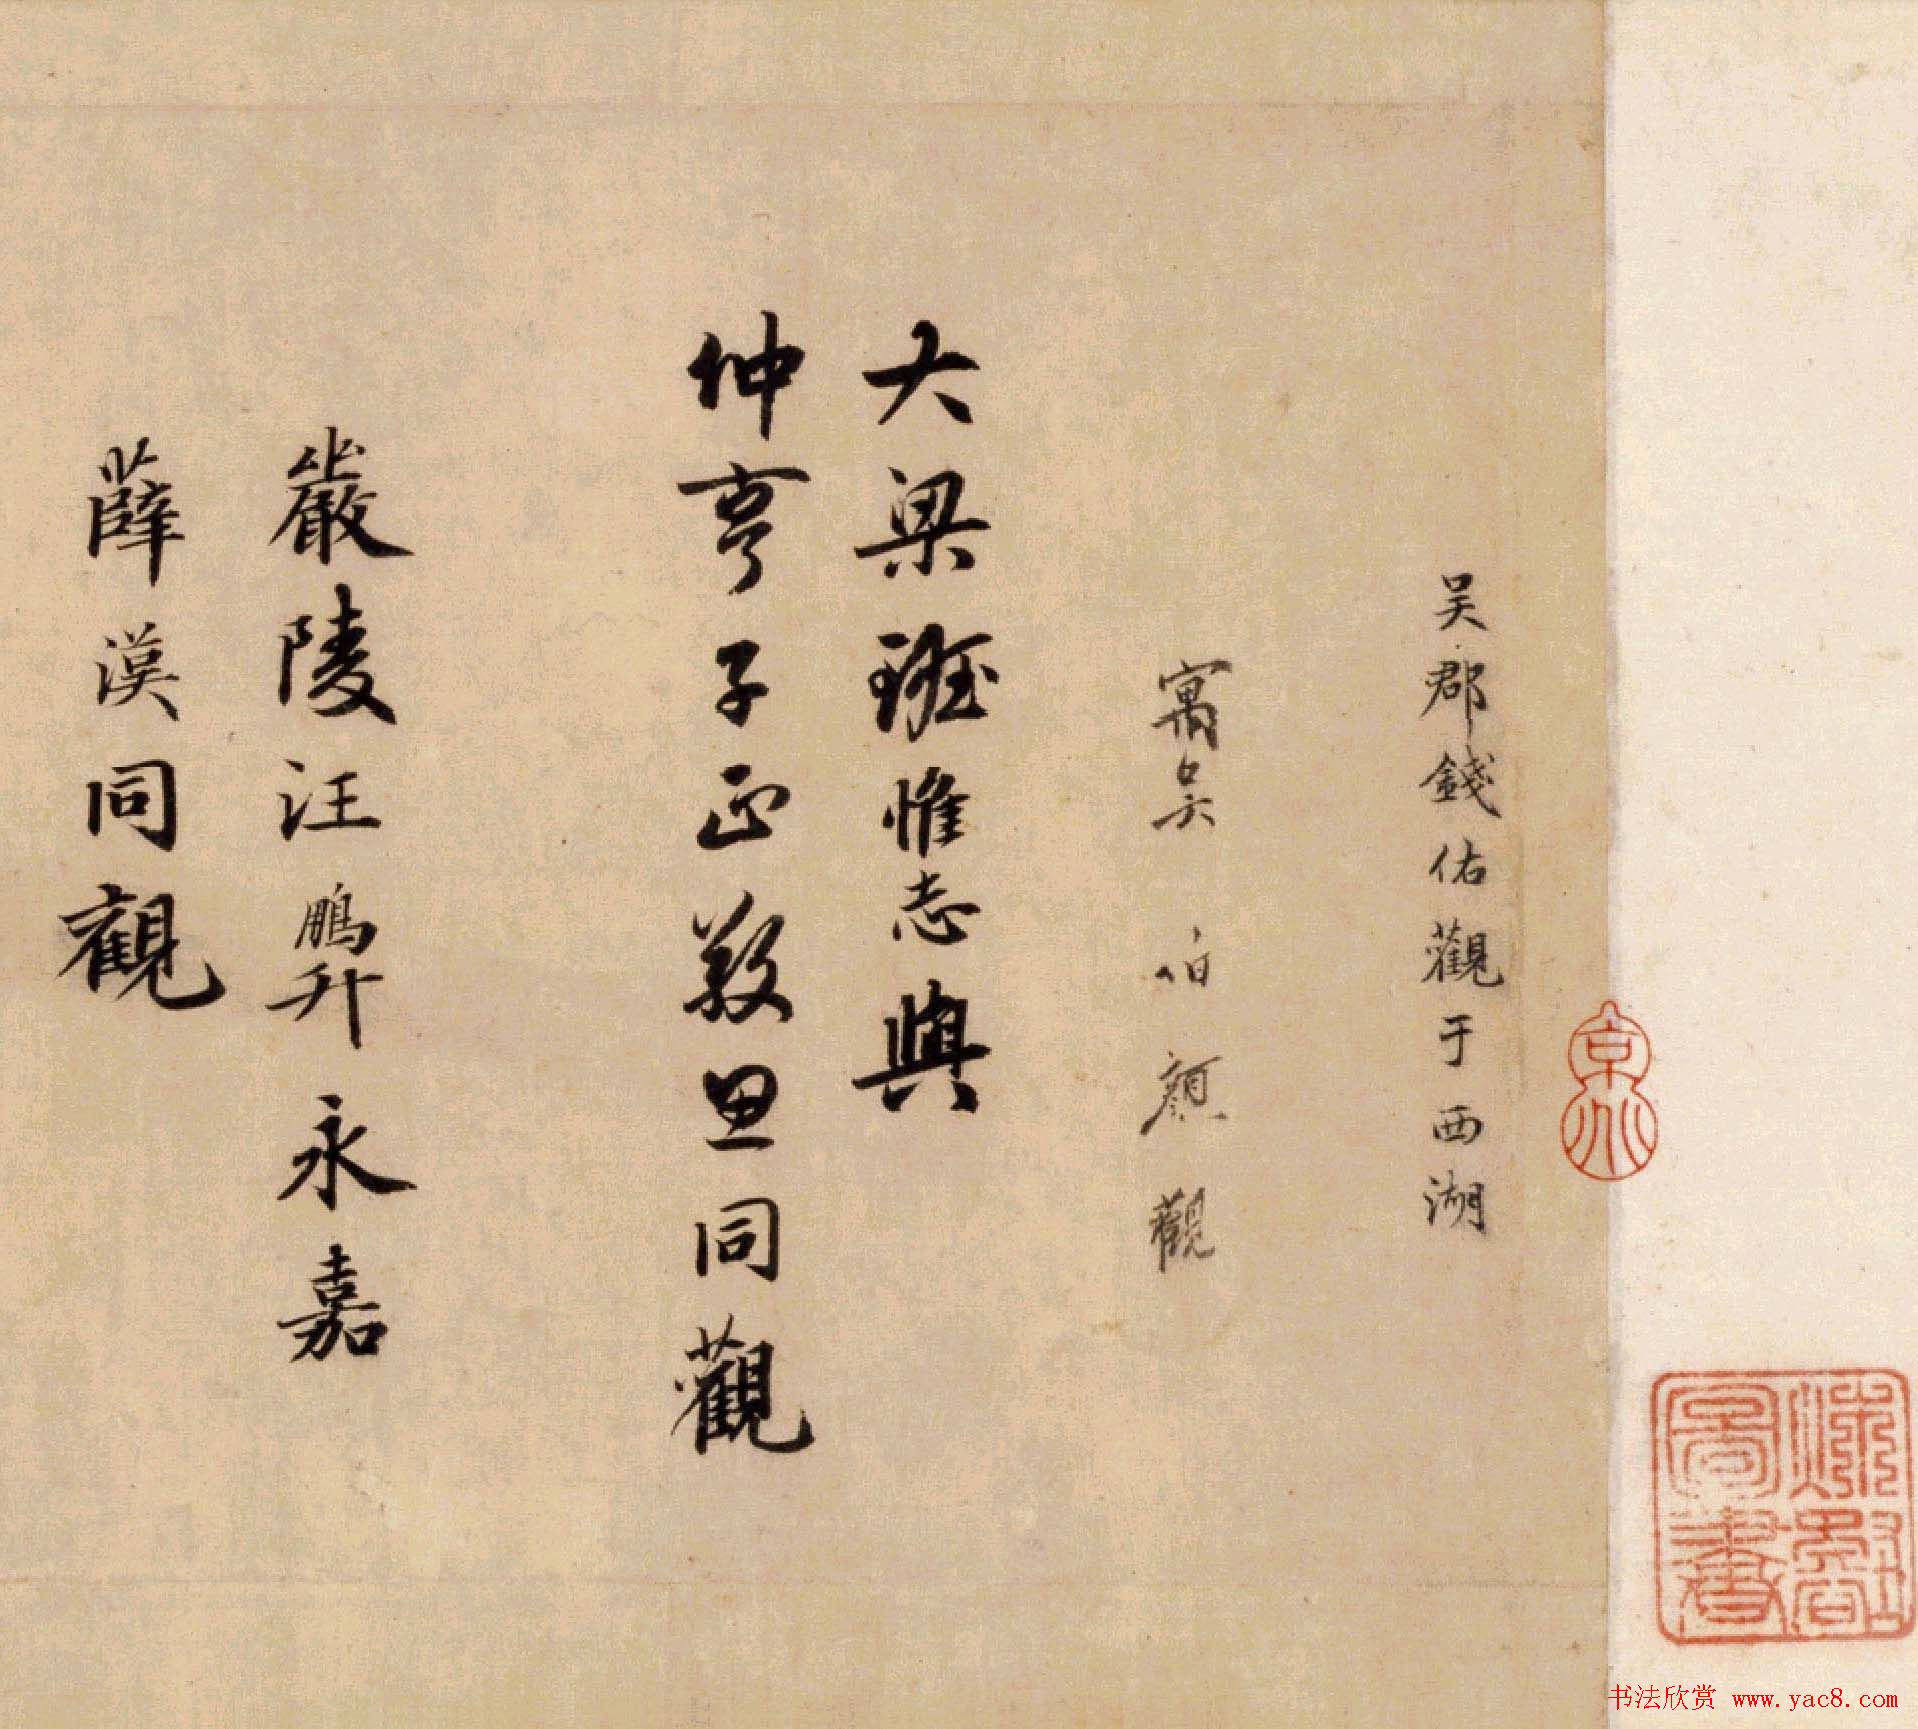 吴郡錢佑觀于西湖
寓吴伯顔觀
大梁班惟志與
仲亨子正敬思同觀
嚴陵汪鵬升永嘉
薛漢同觀
京
書
书法欣赏 www.yac8.com